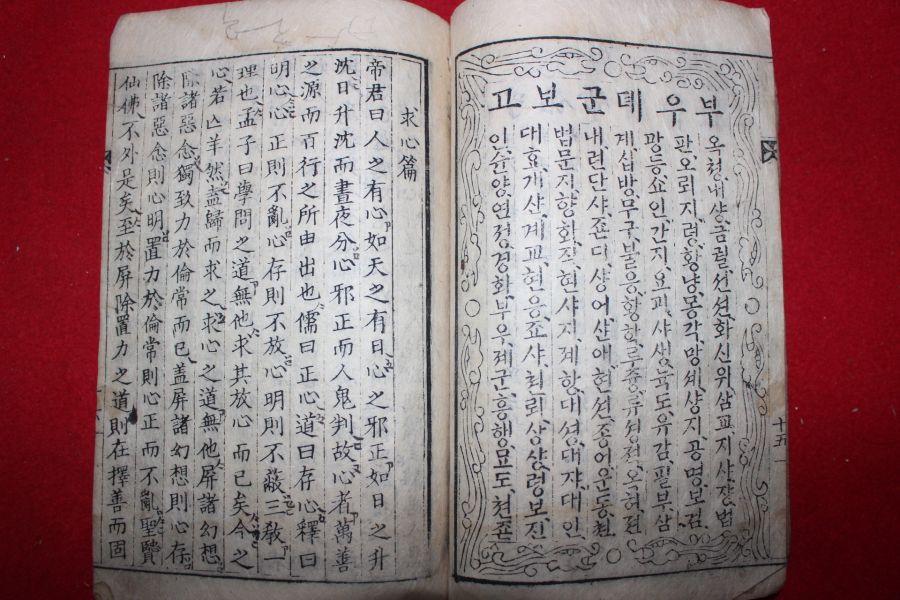 부우뎨군보고
옥쳥내샹금궐션션화신위삼교지샤쟝법
판오뢰지령항냥몽각망셰샹지공명보검
광등쇼인간지요괴샤생뉵도유감필부삼
계십방무구불응황항루쥬류셩졍오허졍
내련단샤죠뎐샹어샨애현션죵어운동쳔
법문지향화진현샤지졔항대셩대쟈대인
대효개샨계교현응죠샤최뢰샹샹령보진
인슌양연졍경화부우졔군흥행묘도쳔존
十五
求心篇
帝君曰人之有心如天之有日心之邪正如日之升
沈日升沈而晝夜分心邪正而人鬼判故心者萬善
之源而百行之所由出也儒曰正心道曰存心釋曰
明心心正則不亂心存則不放心明則不蔽三敎一
理也孟子曰學問之道無他求其放心而已矣今之
心若亡羊然盍歸而求之求心之道無他屏諸幻想
除諸惡念獨致力於倫常而已盖屏諸幻想則心存
除諸惡念則心明置力於倫常則心正而不亂聖賢
仙佛不外是矣至於屏除置力之道則在擇善而固